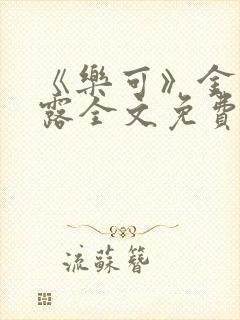 《樂可》金
露全文免費
流蘇簪